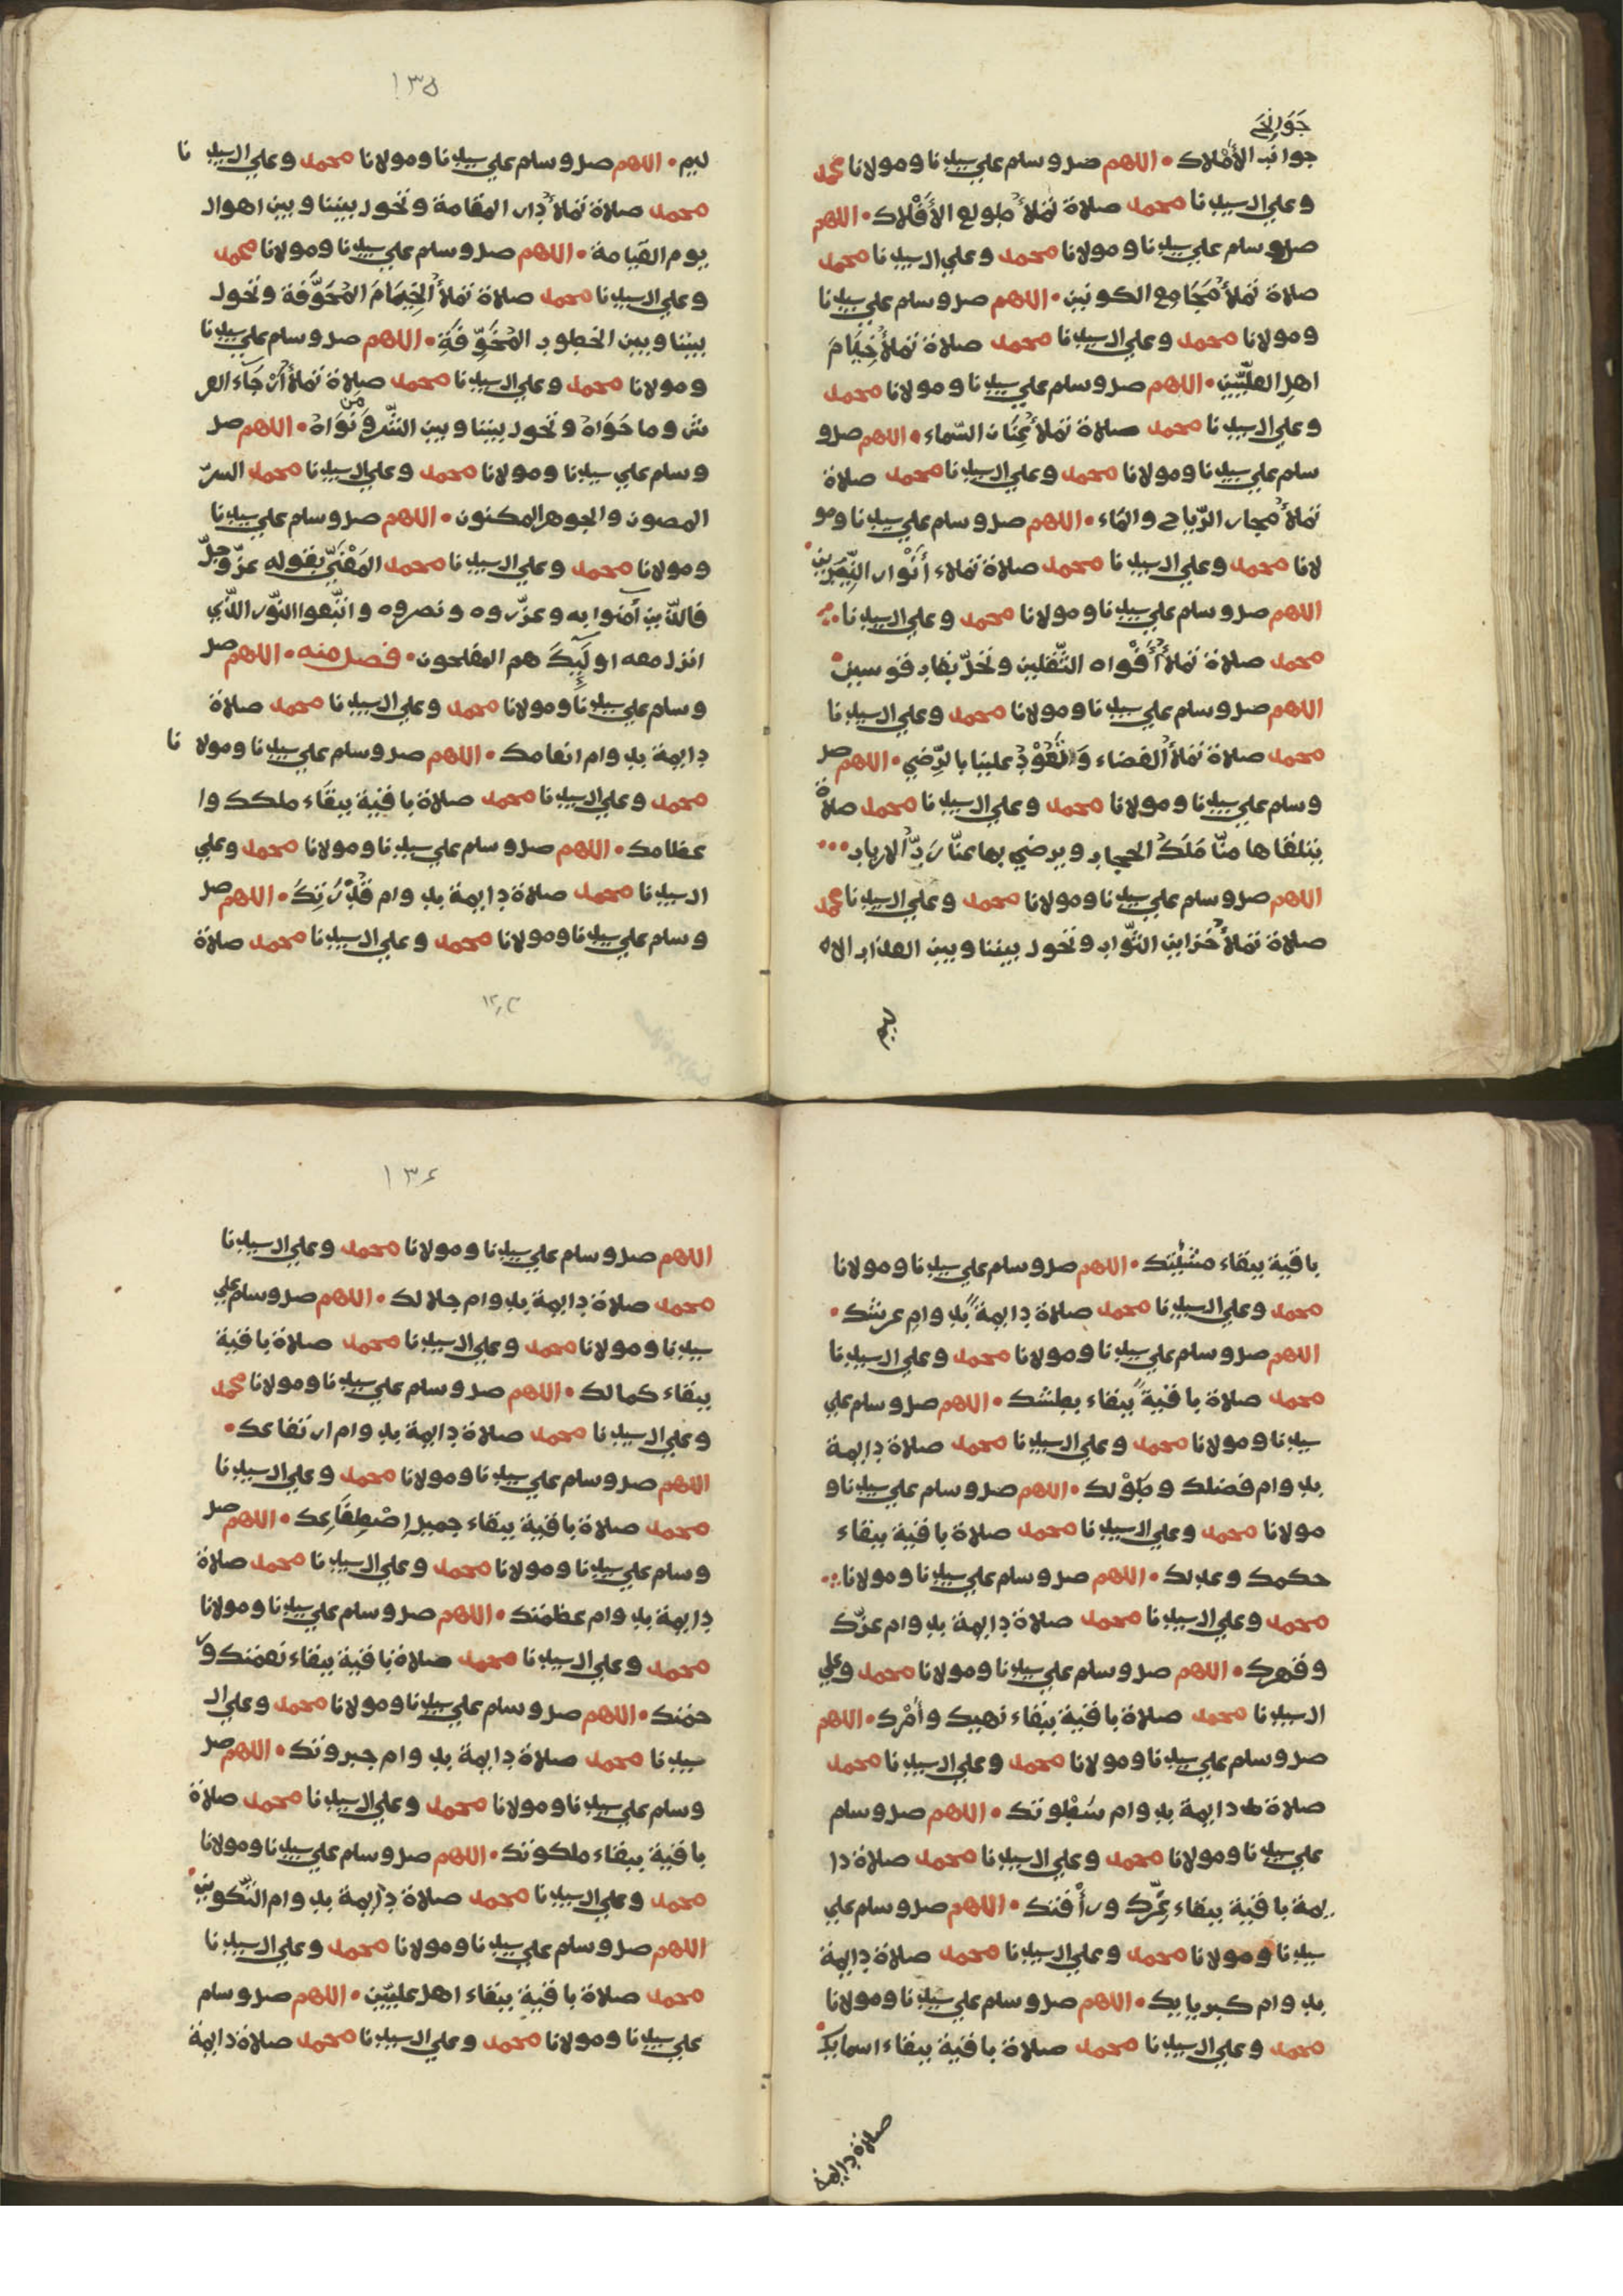 جَوَانِحَ
جوانب الأَمْلاك • اللهم صل وسلم علي سيدنا ومولانا محمد
وعلي ال سيدنا محمد صلاة تملأ طولع الأَفْلاك • اللهم
صل وسلم علي سيدنا ومولانا محمد وعلي ال سيدنا محمد
صلاة تملأ مجَامِع الكونين • اللهم صل وسلم علي سيدنا
ومولانا محمد وعلي ال سيدنا محمد صلاة تملأ خِيَامَ
اهل العلّيّين • اللهم صل وسلم علي سيدنا ومولانا محمد
وعلي ال سيدنا محمد صلاة تملأ عِنَان السّماء • اللهم صل و
سلم علي سيدنا ومولانا محمد وعلي ال سيدنا محمد صلاة
تملأ مجار الرّياح والماء • اللهم صل وسلم علي سيدنا ومو
لانا محمد وعلي ال سيدنا محمد صلاة تملاء أَنْوار النِّيِّرين •
اللهم صل وسلم علي سيدنا ومولانا محمد وعلي ال سيدنا
محمد صلاة تملأ أَفْواه الثّقلين وتحلّ بقاب قوسين •
اللهم صل وسلم علي سيدنا ومولانا محمد وعلي ال سيدنا
محمد صلاة تملأ الفضاء وَتَعُوْدُ علينا بالرّضي • اللهم صل
وسلم علي سيدنا ومولانا محمد وعلي ال سيدنا محمد صلاة
يتلقاها منّا مَلَكُ الحجاب ويرضي بها عنّا رَبُّ الارباب •••
اللهم صل وسلم علي سيدنا ومولانا محمد وعلي ال سيدنا محمد
صلاة تملأ خزاين الثّواب وتحول بيننا وبين العذاب الا
ليم
١٣٥
ليم • اللهم صل وسلم علي سيدنا ومولانا محمد وعلي ال سيدنا
محمد صلاة تملأ دار المقامة وتحول بيننا وبين اهوال
يوم القيامة • اللهم صل وسلم علي سيدنا ومولانا محمد
وعلي ال سيدنا محمد صلاة تملأ الخِيَامَ المُجَوَّفة وتحول
بيننا وبين الخطوب المُخَوِّفَةِ • اللهم صل وسلم علي سيدنا
ومولانا محمد وعلي ال سيدنا محمد صلاة تملأ أَرْجَاءَ العر
ش وما حَوَاهُ وتحول بيننا وبين الشّر وَمَن نَوَاهُ • اللهم صل
وسلم علي سيدنا ومولانا محمد وعلي ال سيدنا محمد السرّ
المصون والجوهر المكنون • اللهم صل وسلم علي سيدنا
ومولانا محمد وعلي ال سيدنا محمد المَعْنَيِّ بقوله عزّ وجلّ
فالّذين آمنوا به وعزّروه ونصروه واتّبعوا النّور الّذي
انزل معه اولَئِكَ هم المفلحون • فصل منه • اللهم صل
وسلم علي سيدنا ومولانا محمد وعلي ال سيدنا محمد صلاة
دايمة بدوام انعامك • اللهم صل وسلم علي سيدنا ومولانا
محمد وعلي ال سيدنا محمد صلاة باقية ببقاء ملكك وا
عظامك • اللهم صل وسلم علي سيدنا ومولانا محمد وعلي
ال سيدنا محمد صلاة دايمة بدوام قُدْرَتِكَ • اللهم صل
وسلم علي سيدنا ومولانا محمد وعلي ال سيدنا محمد صلاة
باقية ببقاء مشيّتك • اللهم صل وسلم علي سيدنا ومولانا
محمد وعلي ال سيدنا محمد صلاة دايمةً بدوام عرشك •
اللهم صل وسلم علي سيدنا ومولانا محمد وعلي ال سيدنا
محمد صلاة باقيةً ببقاء بطشك • اللهم صل وسلم علي
سيدنا ومولانا محمد وعلي ال سيدنا محمد صلاة دايمة
بدوام فضلك وطَوْلك • اللهم صل وسلم علي سيدنا و
مولانا محمد وعلي ال سيدنا محمد صلاة باقية ببقاء
حكمك وعدلك • اللهم صل وسلم علي سيدنا ومولانا
محمد وعلي ال سيدنا محمد صلاة دايمة بدوام عزّك
وقهرك • اللهم صل وسلم علي سيدنا ومولانا محمد وعلي
ال سيدنا محمد صلاة باقية ببقاء نهيك وأَمْرك • اللهم
صل وسلم علي سيدنا ومولانا محمد وعلي ال سيدنا محمد
صلاة دايمة بدوام سَطْوتك • اللهم صل وسلم
علي سيدنا ومولانا محمد وعلي ال سيدنا محمد صلاة دا
يمة باقية ببقاء ورأْفتك • اللهم صل وسلم علي
سيدنا ومولانا محمد وعلي ال سيدنا محمد صلاة دايمة
بدوام كبريايك • اللهم صل وسلم علي سيدنا ومولانا
محمد وعلي ال سيدنا محمد صلاة باقية ببقاء اسمايك •
صلاة دايمة
١٣٦
اللهم صل وسلم علي سيدنا ومولانا محمد وعلي ال سيدنا
محمد صلاة دايمة بدوام جلالك • اللهم صل وسلم علي
سيدنا ومولانا محمد وعلي ال سيدنا محمد صلاة باقية
ببقاء كمالك • اللهم صل وسلم علي سيدنا ومولانا محمد
وعلي ال سيدنا محمد صلاة دايمة بدوام ارتفاعك •
اللهم صل وسلم علي سيدنا ومولانا محمد وعلي ال سيدنا
محمد صلاة باقية ببقاء جميل اِصْطِفَاعِك • اللهم صل
وسلم علي سيدنا ومولانا محمد وعلي ال سيدنا محمد صلاة
دايمة بدوام عظمتك • اللهم صل وسلم علي سيدنا ومولانا
محمد وعلي ال سيدنا محمد صلاة باقية ببقاء نعمتك ور
حمتك • اللهم صل وسلم علي سيدنا ومولانا محمد وعلي ال
سيدنا محمد صلاة دايمة بدوام جبروتك • اللهم صل
وسلم علي سيدنا ومولانا محمد وعلي ال سيدنا محمد صلاة
باقية ببقاء ملكوتك • اللهم صل وسلم علي سيدنا ومولانا
محمد وعلي ال سيدنا محمد صلاة دايمة بدوام التّكوين •
اللهم صل وسلم علي سيدنا ومولانا محمد وعلي ال سيدنا
محمد صلاة باقية ببقاء اهل عليّين • اللهم صل وسلم
علي سيدنا ومولانا محمد وعلي ال سيدنا محمد صلاة دايمة